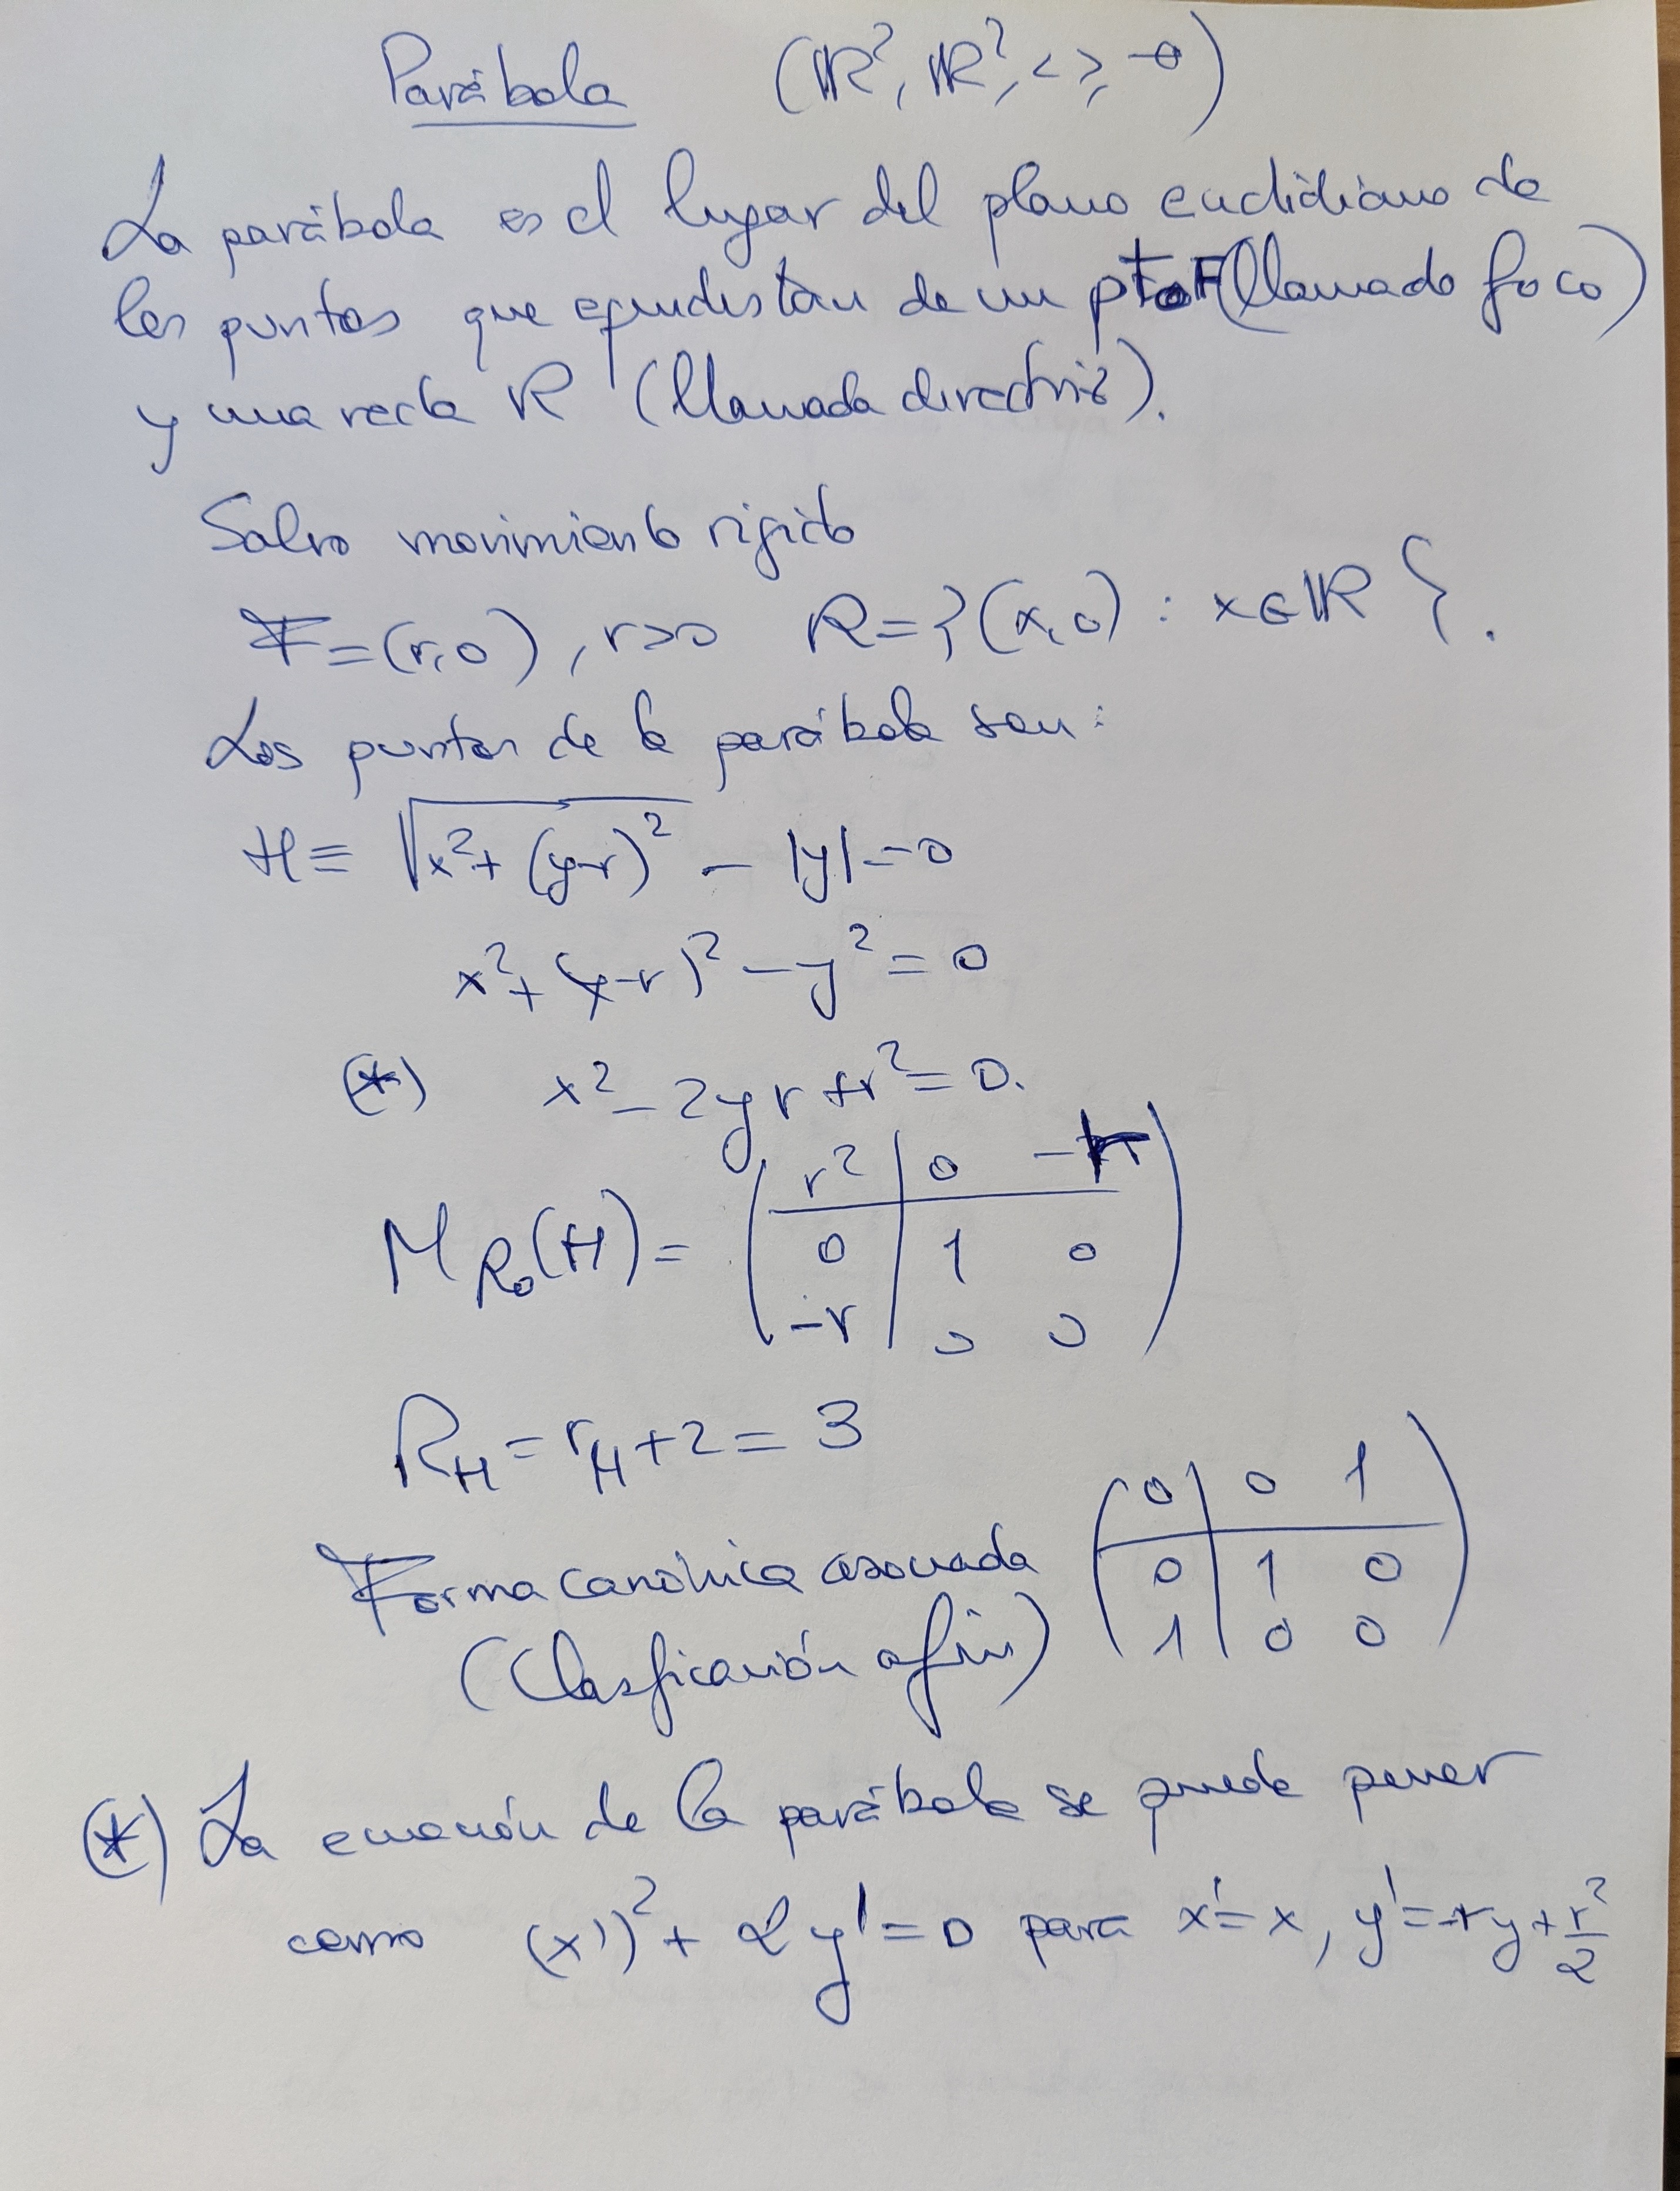 Parábola (ℝ², ℝ², < >, →)
La parábola es el lugar del plano euclidiano de
los puntos que equidistan de un pto F (llamado foco)
y una recta R (llamada directriz).
Salvo movimiento rígido
F = (r, 0), r>0 R = {(x, 0) : x ∈ ℝ}.
Los puntos de la parábola son:
H ≡ √(x² + (y-r)²) - |y| = 0
x² + (y-r)² - y² = 0
(*) x² - 2yr + r² = 0.
r² | 0 -r
M_{R₀}(H) = ( 0 | 1 0 )
-r | 0 0
R_H = r_H + 2 = 3
0 | 0 1
Forma canónica asociada ( 0 | 1 0 )
(Clasificación afín) 1 | 0 0
(*) La ecuación de la parábola se puede poner
como (x')² + 2y' = 0 para x' = x, y' = -ry + r²/2